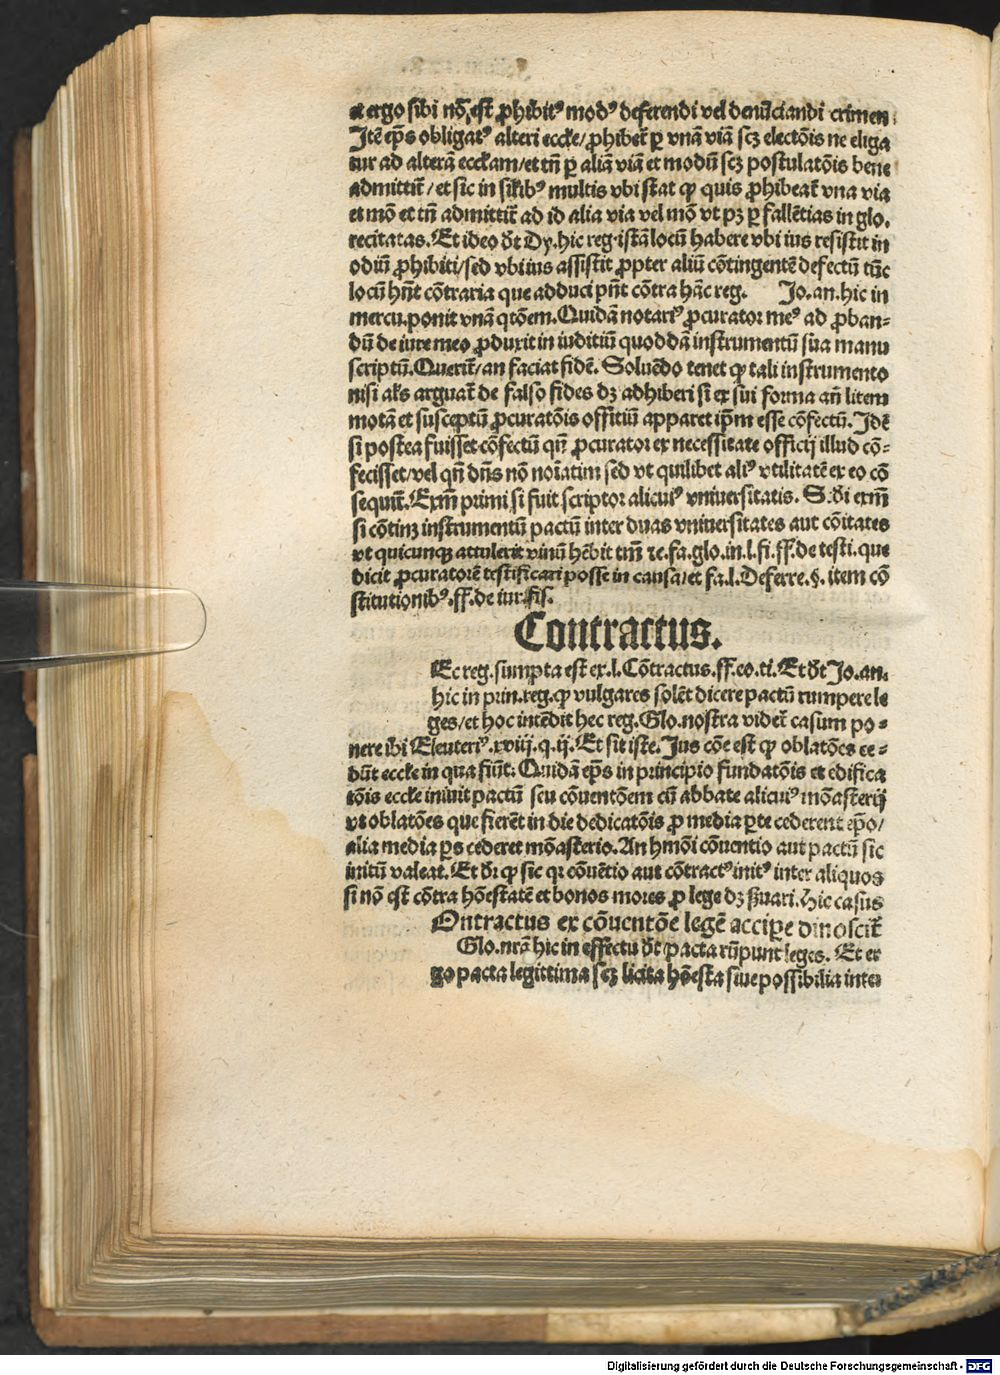 et ergo sibi nõ est ꝓhibitꝰ modꝰ deferendi vel denũciandi crimen
Itẽ ep̃s obligatꝰ alteri eccłe/ꝓhibet̃ ꝑ vnã viã scꝫ electõis ne eliga
tur ad alterã eccłam/et tñ ꝑ aliã viã et modũ scꝫ postulatõis bene
admittit̃/et sic in sił̃ibꝰ multis vbi stat ꝙ quis ꝓhibeat̃ vna via
et mõ et tñ admittit̃ ad id alia via vel mõ vt pꝫ ꝑ fallẽtias in glo.
recitatas. Et ideo d̃t Dy. hic reg. istã locũ habere vbi ius resistit in
odiũ ꝓhibiti/sed vbi ius assistit ꝓpter aliũ cõtingentẽ defectũ tũc
locũ hñt cõtraria que adduci pñt cõtra hãc reg. Jo. an. hic in
mercu. ponit vnã q̃tõem. Quidã notariꝰ ꝓcurator meꝰ ad ꝓban-
dũ de iure meo ꝓduxit in iuditiũ quoddã instrumentũ sua manu
scriptũ. Querit̃/an faciat fidẽ. Soluẽdo tenet ꝙ tali instrumento
nisi ałs arguat̃ de falso fides dꝫ adhiberi si ex sui forma añ litem
motã et susceptũ ꝓcuratõis offitiũ apparet ip̃m esse cõfectũ. Idẽ
si postea fuisset cõfectũ qñ ꝓcurator ex necessitate officij illud cõ-
fecisset/vel qñ dñs nõ noĩatim sed vt quilibet aliꝰ vtilitatẽ ex eo cõ
sequit̃. Exm̃ primi si fuit scriptor alicuiꝰ vniuersitatis. S. di exm̃
si cõtinꝫ instrumentũ pactũ inter duas vniuersitates aut cõitates
vt quicunqꝫ attulerit vinũ hẽbit tm̃ ⁊c. fa. glo. in. l. fi. ff. de testi. que
dicit ꝓcuratorẽ testificari posse in causa/et fa. l. Deferre. §. item cõ
stitutionibꝰ. ff. de iur. fis.
Contractus.
Ec reg. sumpta est ex. l. Cõtractus. ff. eo. ti. Et d̃t Jo. an.
hic in prin. reg. ꝙ vulgares solẽt dicere pactũ rumpere le
ges/et hoc intẽdit hec reg. Glo. nostra videt̃ casum po-
nere ibi Eleuteriꝰ. xviij. q. ij. Et sit iste. Jus cõe est ꝙ oblatões ce-
dũt eccłe in qua fiũt: Quidã ep̃s in principio fundatõis et edifica
tõis eccłe iniuit pactũ seu cõuentõem cũ abbate alicuiꝰ mõasterij
vt oblatões que fierẽt in die dedicatõis ꝓ media ꝑte cederent ep̃o/
alia media ꝑs cederet mõasterio. An hmõi cõuentio aut pactũ sic
initũ valeat. Et d̃r ꝙ sic qr cõuẽtio aut cõtractꝰ initꝰ inter aliquos
si nõ est cõtra hõestatẽ et bonos mores ꝓ lege dꝫ ẞuari. Hic casus
Ontractus ex cõuentõe legẽ accipe dinoscit̃
Glo. nr̃a hic in effectu d̃t pacta rũpunt leges. Et er
go pacta legittima scꝫ licita hõesta siue possibilia inter
Digitalisierung gefördert durch die Deutsche Forschungsgemeinschaft - DFG